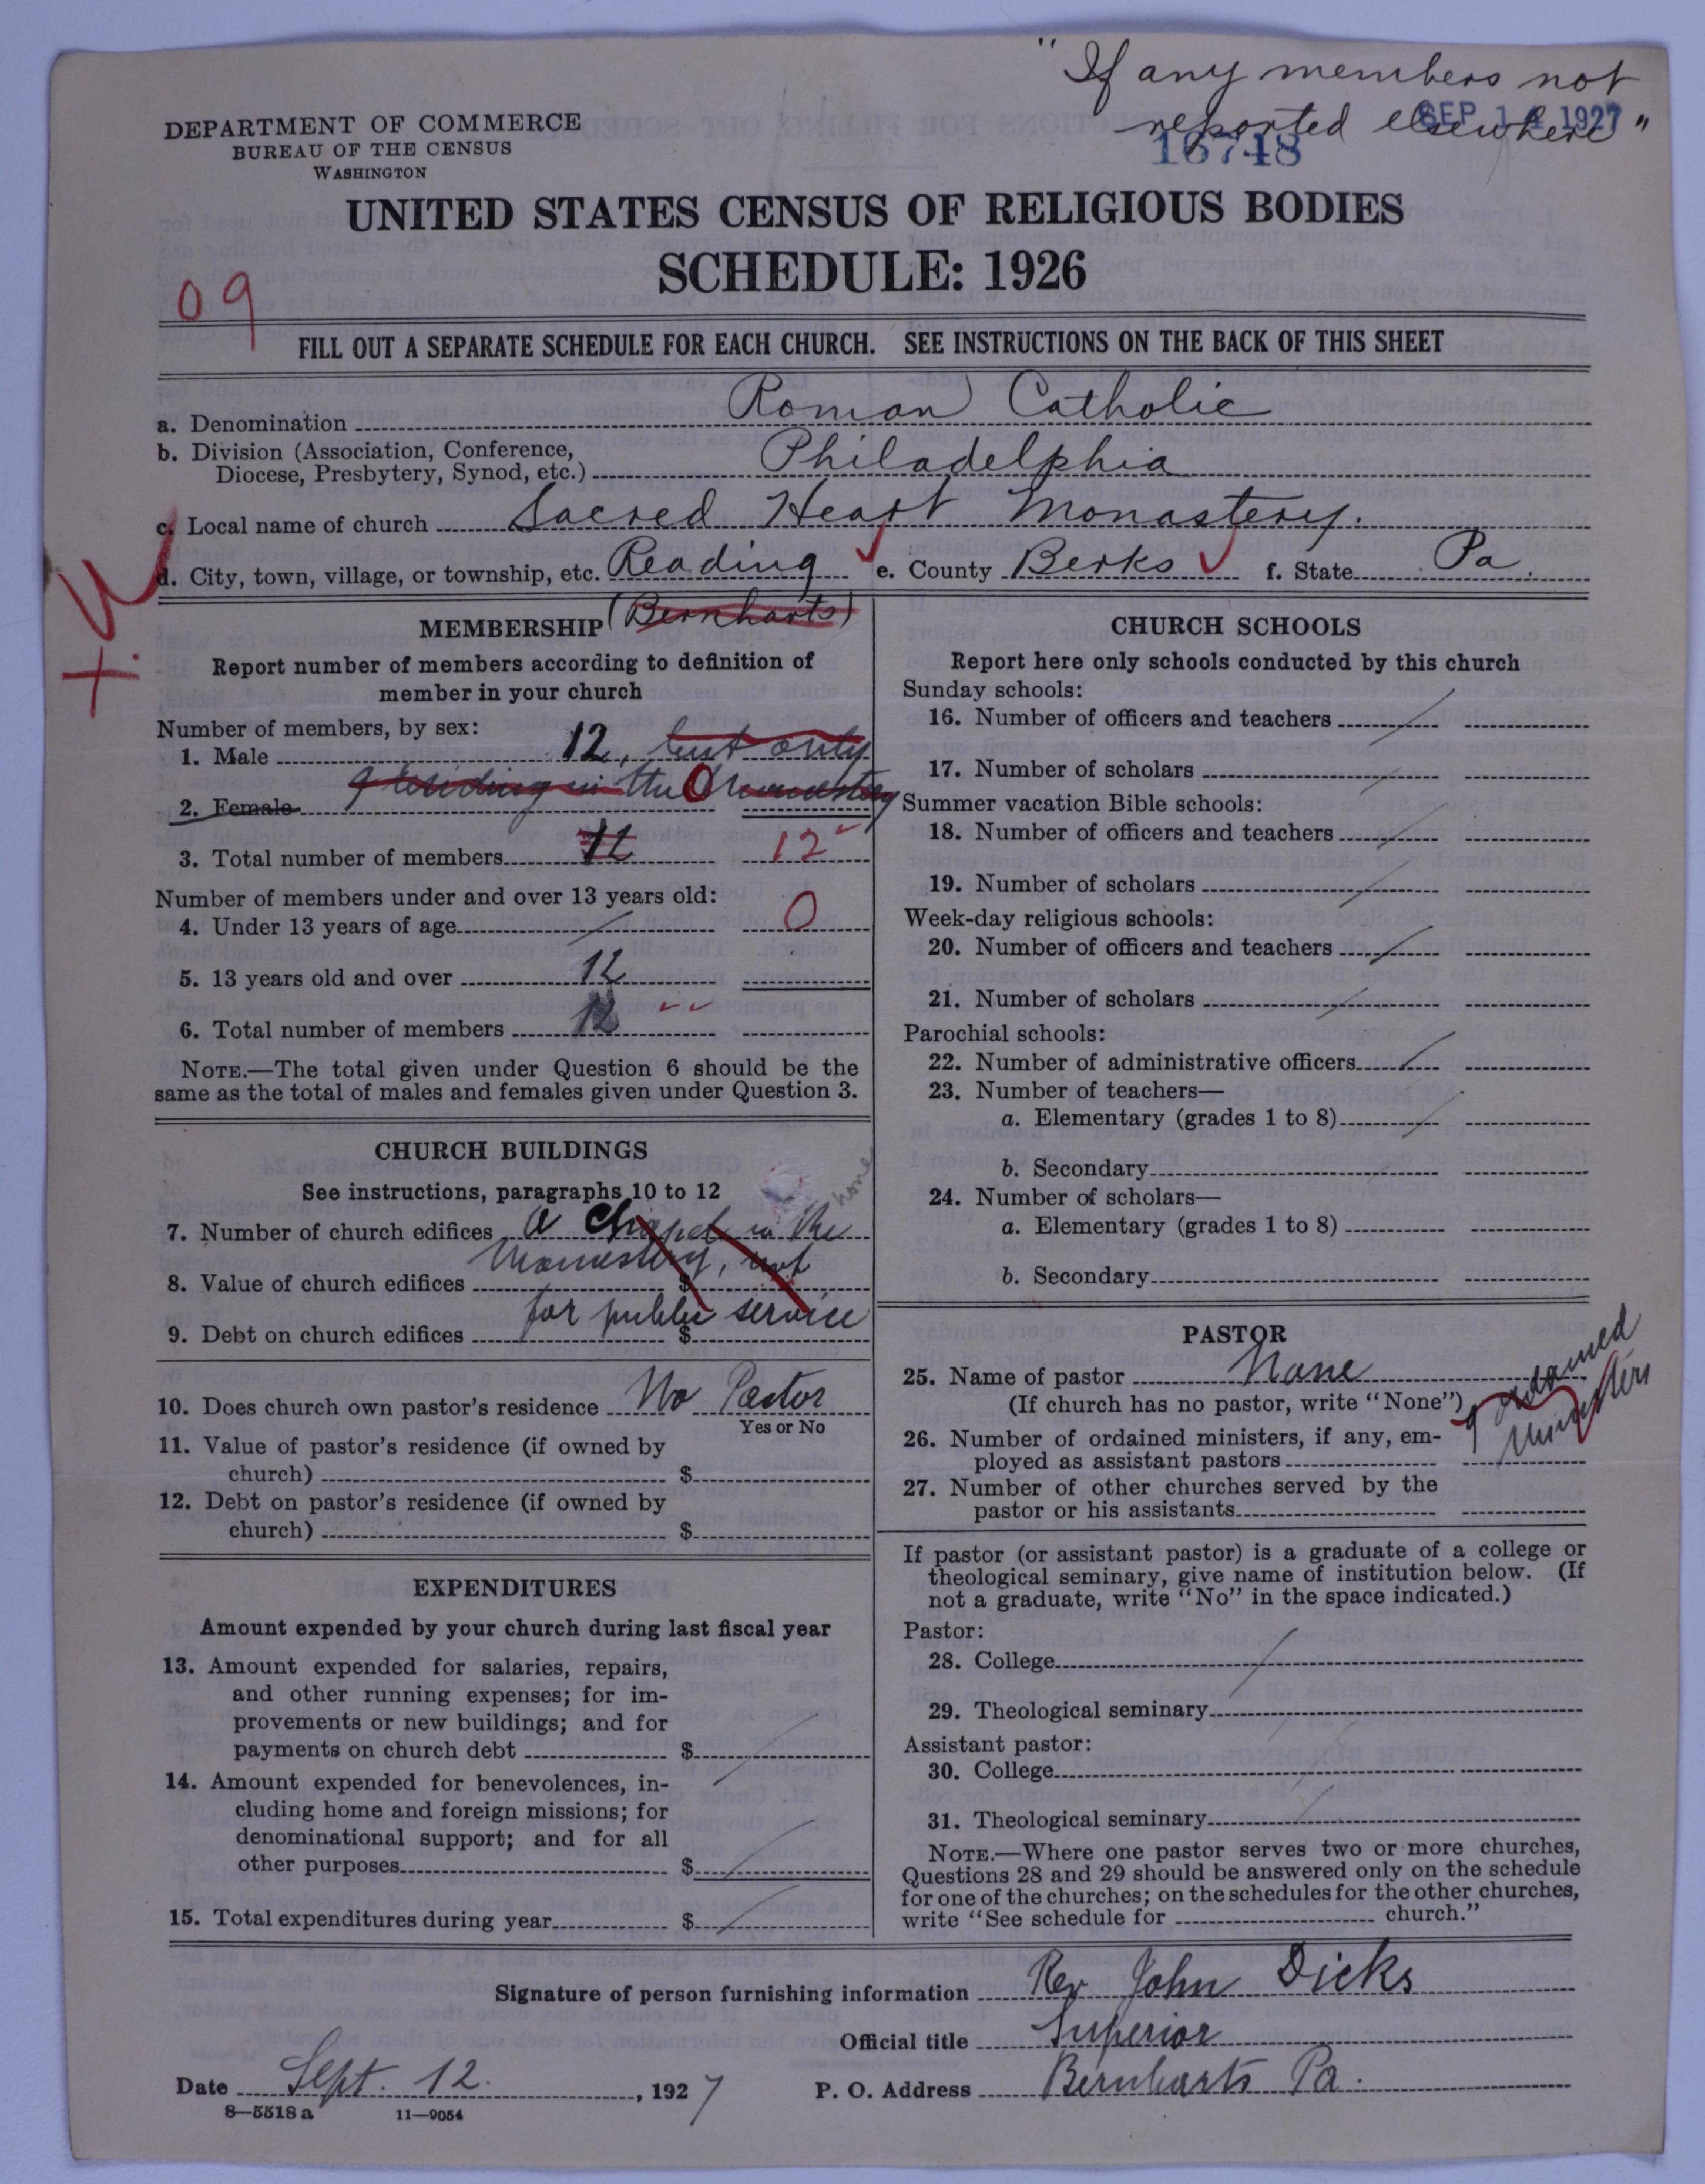 "If any members not
reported elsewhere"
SEP 14 1927
16748
DEPARTMENT OF COMMERCE
BUREAU OF THE CENSUS
WASHINGTON
UNITED STATES CENSUS OF RELIGIOUS BODIES
SCHEDULE: 1926
09
FILL OUT A SEPARATE SCHEDULE FOR EACH CHURCH. SEE INSTRUCTIONS ON THE BACK OF THIS SHEET
a. Denomination Roman Catholic
b. Division (Association, Conference,
Diocese, Presbytery, Synod, etc.) Philadelphia
c. Local name of church Sacred Heart Monastery.
d. City, town, village, or township, etc. Reading e. County Berks f. State Pa.
(Bernharts)
MEMBERSHIP
Report number of members according to definition of
member in your church
Number of members, by sex:
1. Male 12, but only
9 residing in the monastery
2. Female 0
3. Total number of members 12 12
Number of members under and over 13 years old:
4. Under 13 years of age / 0
5. 13 years old and over 12
6. Total number of members 12
NOTE.—The total given under Question 6 should be the
same as the total of males and females given under Question 3.
CHURCH BUILDINGS
See instructions, paragraphs 10 to 12
none
7. Number of church edifices a Chapel in the
monastery, not
8. Value of church edifices $
for public service
9. Debt on church edifices $
10. Does church own pastor's residence No Pastor
Yes or No
11. Value of pastor's residence (if owned by
church) $
12. Debt on pastor's residence (if owned by
church) $
EXPENDITURES
Amount expended by your church during last fiscal year
13. Amount expended for salaries, repairs,
and other running expenses; for im-
provements or new buildings; and for
payments on church debt $
14. Amount expended for benevolences, in-
cluding home and foreign missions; for
denominational support; and for all
other purposes $
15. Total expenditures during year $
CHURCH SCHOOLS
Report here only schools conducted by this church
Sunday schools:
16. Number of officers and teachers
17. Number of scholars
Summer vacation Bible schools:
18. Number of officers and teachers
19. Number of scholars
Week-day religious schools:
20. Number of officers and teachers
21. Number of scholars
Parochial schools:
22. Number of administrative officers
23. Number of teachers—
a. Elementary (grades 1 to 8)
b. Secondary
24. Number of scholars—
a. Elementary (grades 1 to 8)
b. Secondary
PASTOR
25. Name of pastor None
(If church has no pastor, write "None")
9 ordained
ministers
26. Number of ordained ministers, if any, em-
ployed as assistant pastors
27. Number of other churches served by the
pastor or his assistants
If pastor (or assistant pastor) is a graduate of a college or
theological seminary, give name of institution below. (If
not a graduate, write "No" in the space indicated.)
Pastor:
28. College
29. Theological seminary
Assistant pastor:
30. College
31. Theological seminary
NOTE.—Where one pastor serves two or more churches,
Questions 28 and 29 should be answered only on the schedule
for one of the churches; on the schedules for the other churches,
write "See schedule for church."
Signature of person furnishing information Rev John Dicks
Official title Superior
Date Sept. 12., 1927 P. O. Address Bernharts Pa.
8—5518 a 11—9054